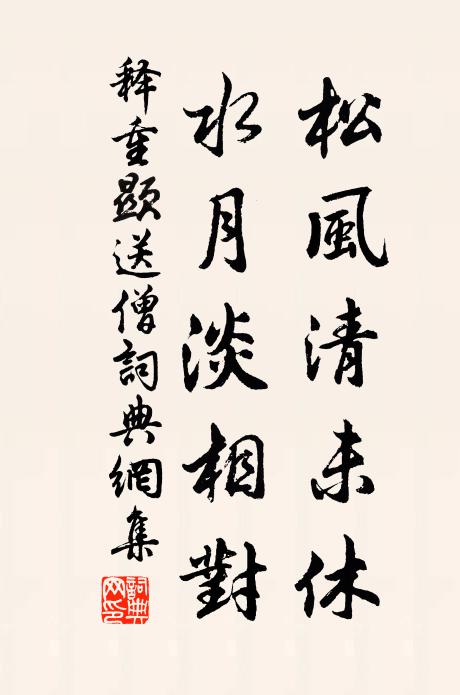 松風清未休
水月淡相對
释重顯送僧詞典網集
詞典网印